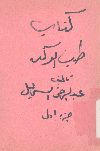 كتاب
طب الركة
تأليف
عبد الرحمن اسماعيل
جزء اول